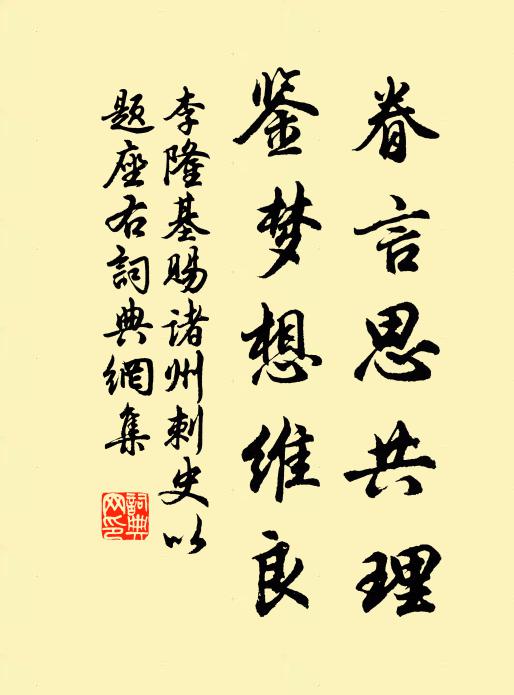 眷言思共理
鉴梦想维良
李隆基赐诸州刺史以
题座右詞典網集
詞典网印